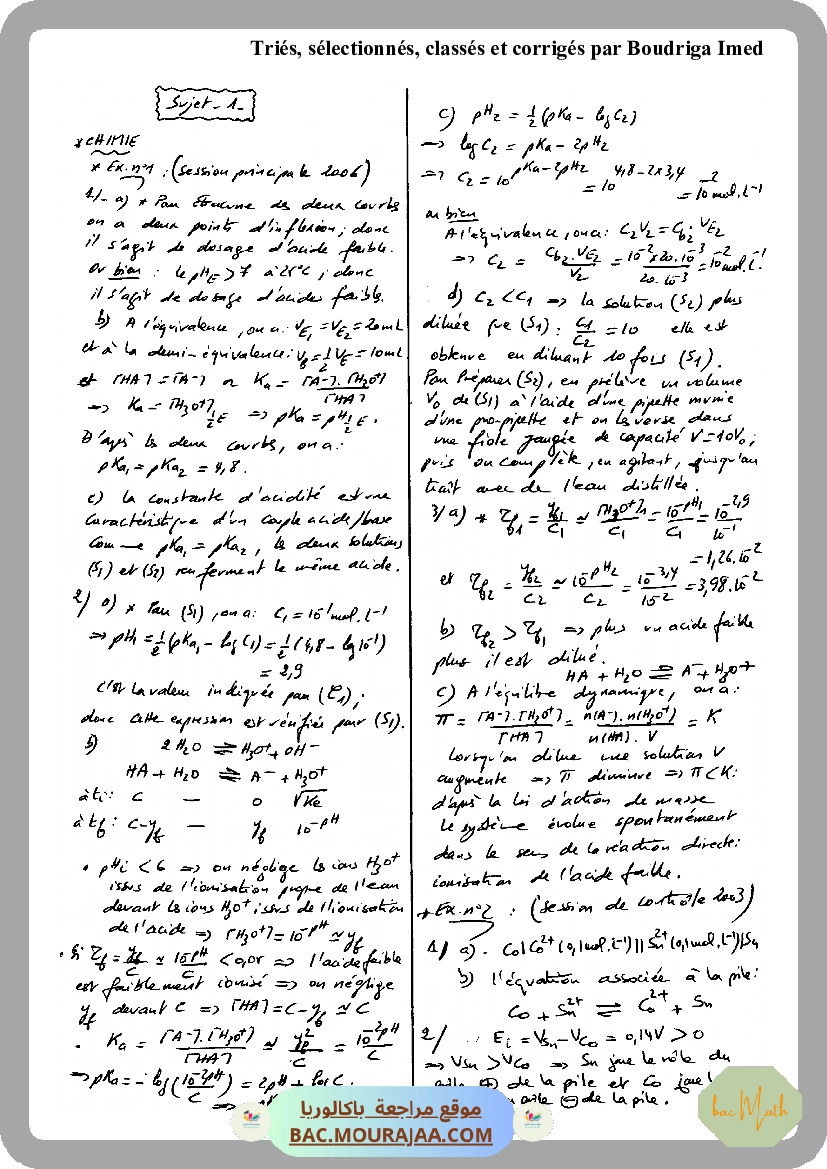 Triés, sélectionnés, classés et corrigés par Boudriga Imed
Sujet_1_
* CHIMIE
* Ex. n°1 : (session principale 2006)
1/- a) * Pour chacune des deux courbes
on a deux points d'inflexion ; donc
il s'agit de dosage d'acide faible.
Or bien : le pHE > 7 à 25°C ; donc
il s'agit de dosage d'acides faibles.
b) A l'équivalence, on a : VE1 = VE2 = 20mL
et à la demi-équivalence : VB = 1/2 VE = 10mL
et [HA] = [A-] or Ka = [A-].[H3O+]/[HA]
=> Ka = [H3O+]1/2E => pKa = pH1/2E.
D'après les deux courbes, on a :
pKa1 = pKa2 = 4,8.
c) la constante d'acidité est une
caractéristique d'un couple acide/base
comme pKa1 = pKa2, les deux solutions
(S1) et (S2) renferment le même acide.
2/ a) * Pour (S1), on a : C1 = 10-1 mol.L-1
=> pH1 = 1/2 (pKa1 - log C1) = 1/2 (4,8 - log 10-1)
= 2,9
C'est la valeur indiquée par (C1) ;
donc cette expression est vérifiée pour (S1).
b) 2 H2O ⇌ H3O+ + OH-
HA + H2O ⇌ A- + H3O+
à ti : C — 0 √Ke
à tf : C-yf — yf 10-pH
• pHi < 6 => on néglige les ions H3O+
issus de l'ionisation propre de l'eau
devant les ions H3O+ issus de l'ionisation
de l'acide => [H3O+] = 10-pH ≃ yf
• Si τf = yf/C ≃ 10-pH/C < 0,05 => l'acide faible
est faiblement ionisé => on néglige
yf devant C => [HA] = C-yf ≃ C
• Ka = [A-].[H3O+]/[HA] ≃ yf2/C = 10-2pH/C
=> pKa = - log (10-2pH/C) = 2pH + log C.
=>
c) pH2 = 1/2 (pKa - log C2)
=> log C2 = pKa - 2pH2
=> C2 = 10pKa-2pH2 = 10 4,8-2x3,4 = 10-2 mol.L-1
ou bien
A l'équivalence, on a : C2V2 = Cb2.VE2
=> C2 = Cb2.VE2/V2 = 10-2x20.10-3/20.10-3 = 10-2 mol.L-1
d) C2 < C1 => la solution (S2) plus
diluée que (S1) : C1/C2 = 10 elle est
obtenue en diluant 10 fois (S1).
Pour Préparer (S2), on prélève un volume
V0 de (S1) à l'aide d'une pipette munie
d'une pro-pipette et on le verse dans
une fiole jaugée de capacité V = 10V0 ;
puis on complète, en agitant, jusqu'au
trait avec de l'eau distillée.
3/ a) * τf1 = yf1/C1 ≃ [H3O+]1/C1 = 10-pH1/C1 = 10-2,9/10-1
= 1,26.10-2
et τf2 = yf2/C2 ≃ 10-pH2/C2 = 10-3,4/10-2 = 3,98.10-2
b) τf2 > τf1 => plus un acide faible
plus il est dilué.
HA + H2O ⇌ A- + H3O+
c) A l'équilibre dynamique, on a :
π = [A-].[H3O+]/[HA] = n(A-).n(H3O+)/n(HA).V = K
Lorsqu'on dilue une solution V
augmente => π diminue => π < K :
d'après la loi d'action de masse
le système évolue spontanément
dans le sens de la réaction directe :
ionisation de l'acide faible.
* Ex. n°2 : (session de contrôle 2003)
1/ a) . Co|Co2+ (0,1mol.L-1) || Sn2+ (0,1mol.L-1)|Sn
b) l'équation associée à la pile :
Co + Sn2+ ⇌ Co2+ + Sn
2/ Ei = VSn - VCo = 0,14V > 0
=> VSn > VCo => Sn joue le rôle du
pôle ⊕ de la pile et Co joue l
pôle ⊖ de la pile.
موقع مراجعة باكالوريا
BAC.MOURAJAA.COM
bac Math